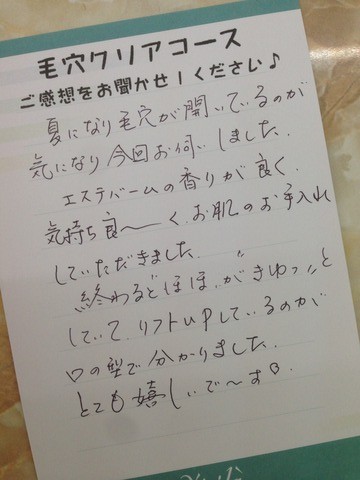 毛穴クリアコース
ご感想をお聞かせください♪
夏になり毛穴が開いているのが
気になり今回お伺いしました.
エステバームの香りが良く.
気持ち良〜く.お肌のお手入れ
していただきました.
終わるとほほがきゅっッと
していて.リフトupしているのが
口の型で分かりました.
とても嬉しいで〜す